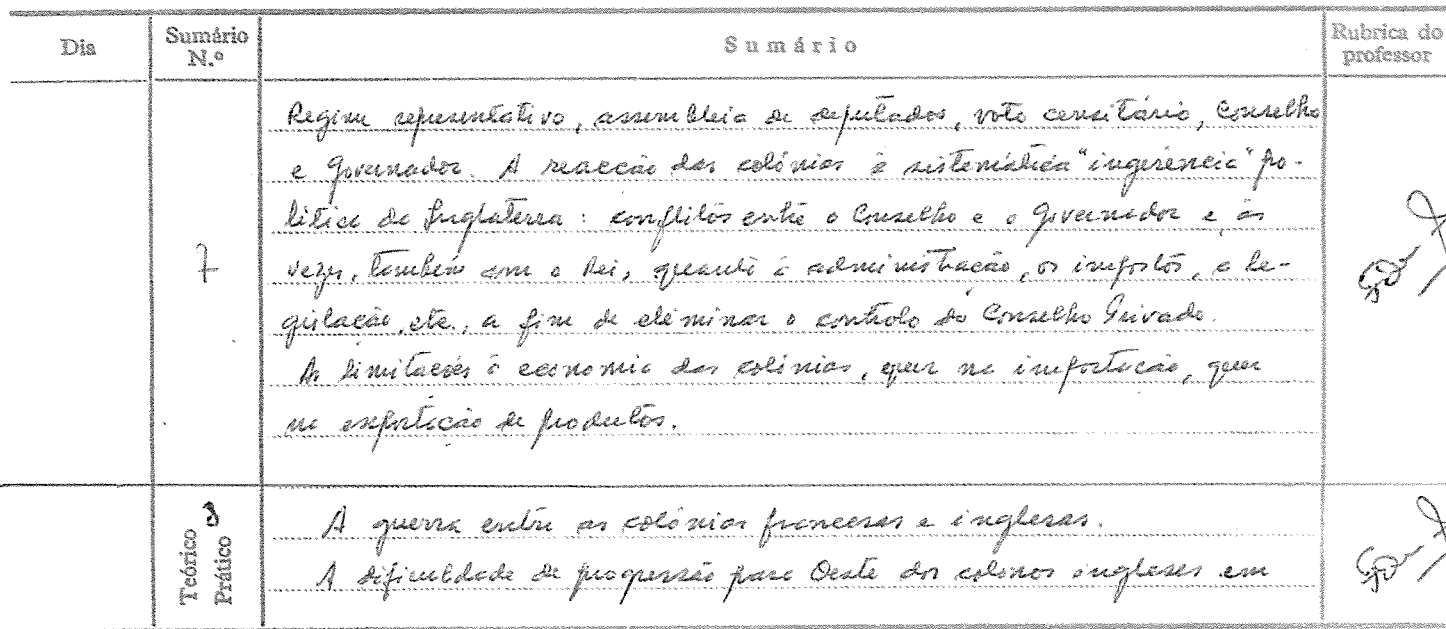 Dia
Sumário N.º
Sumário
Rubrica do professor
Regime representativo, assembleia de deputados, voto censitário, Conselho
e Governador. A reacção das colónias à sistemática "ingerência" po-
lítica da Inglaterra: conflitos entre o Conselho e o Governador e às
7
vezes, também com o Rei, quanto à administração, os impostos, a le-
gislação, etc., a fim de eliminar o controlo do Conselho Privado.
As limitações à economia das colónias, quer na importação, quer
na exportação de produtos.
Teórico
Prático
A guerra entre as colónias francesas e inglesas.
A dificuldade de progressão para Oeste dos colonos ingleses em